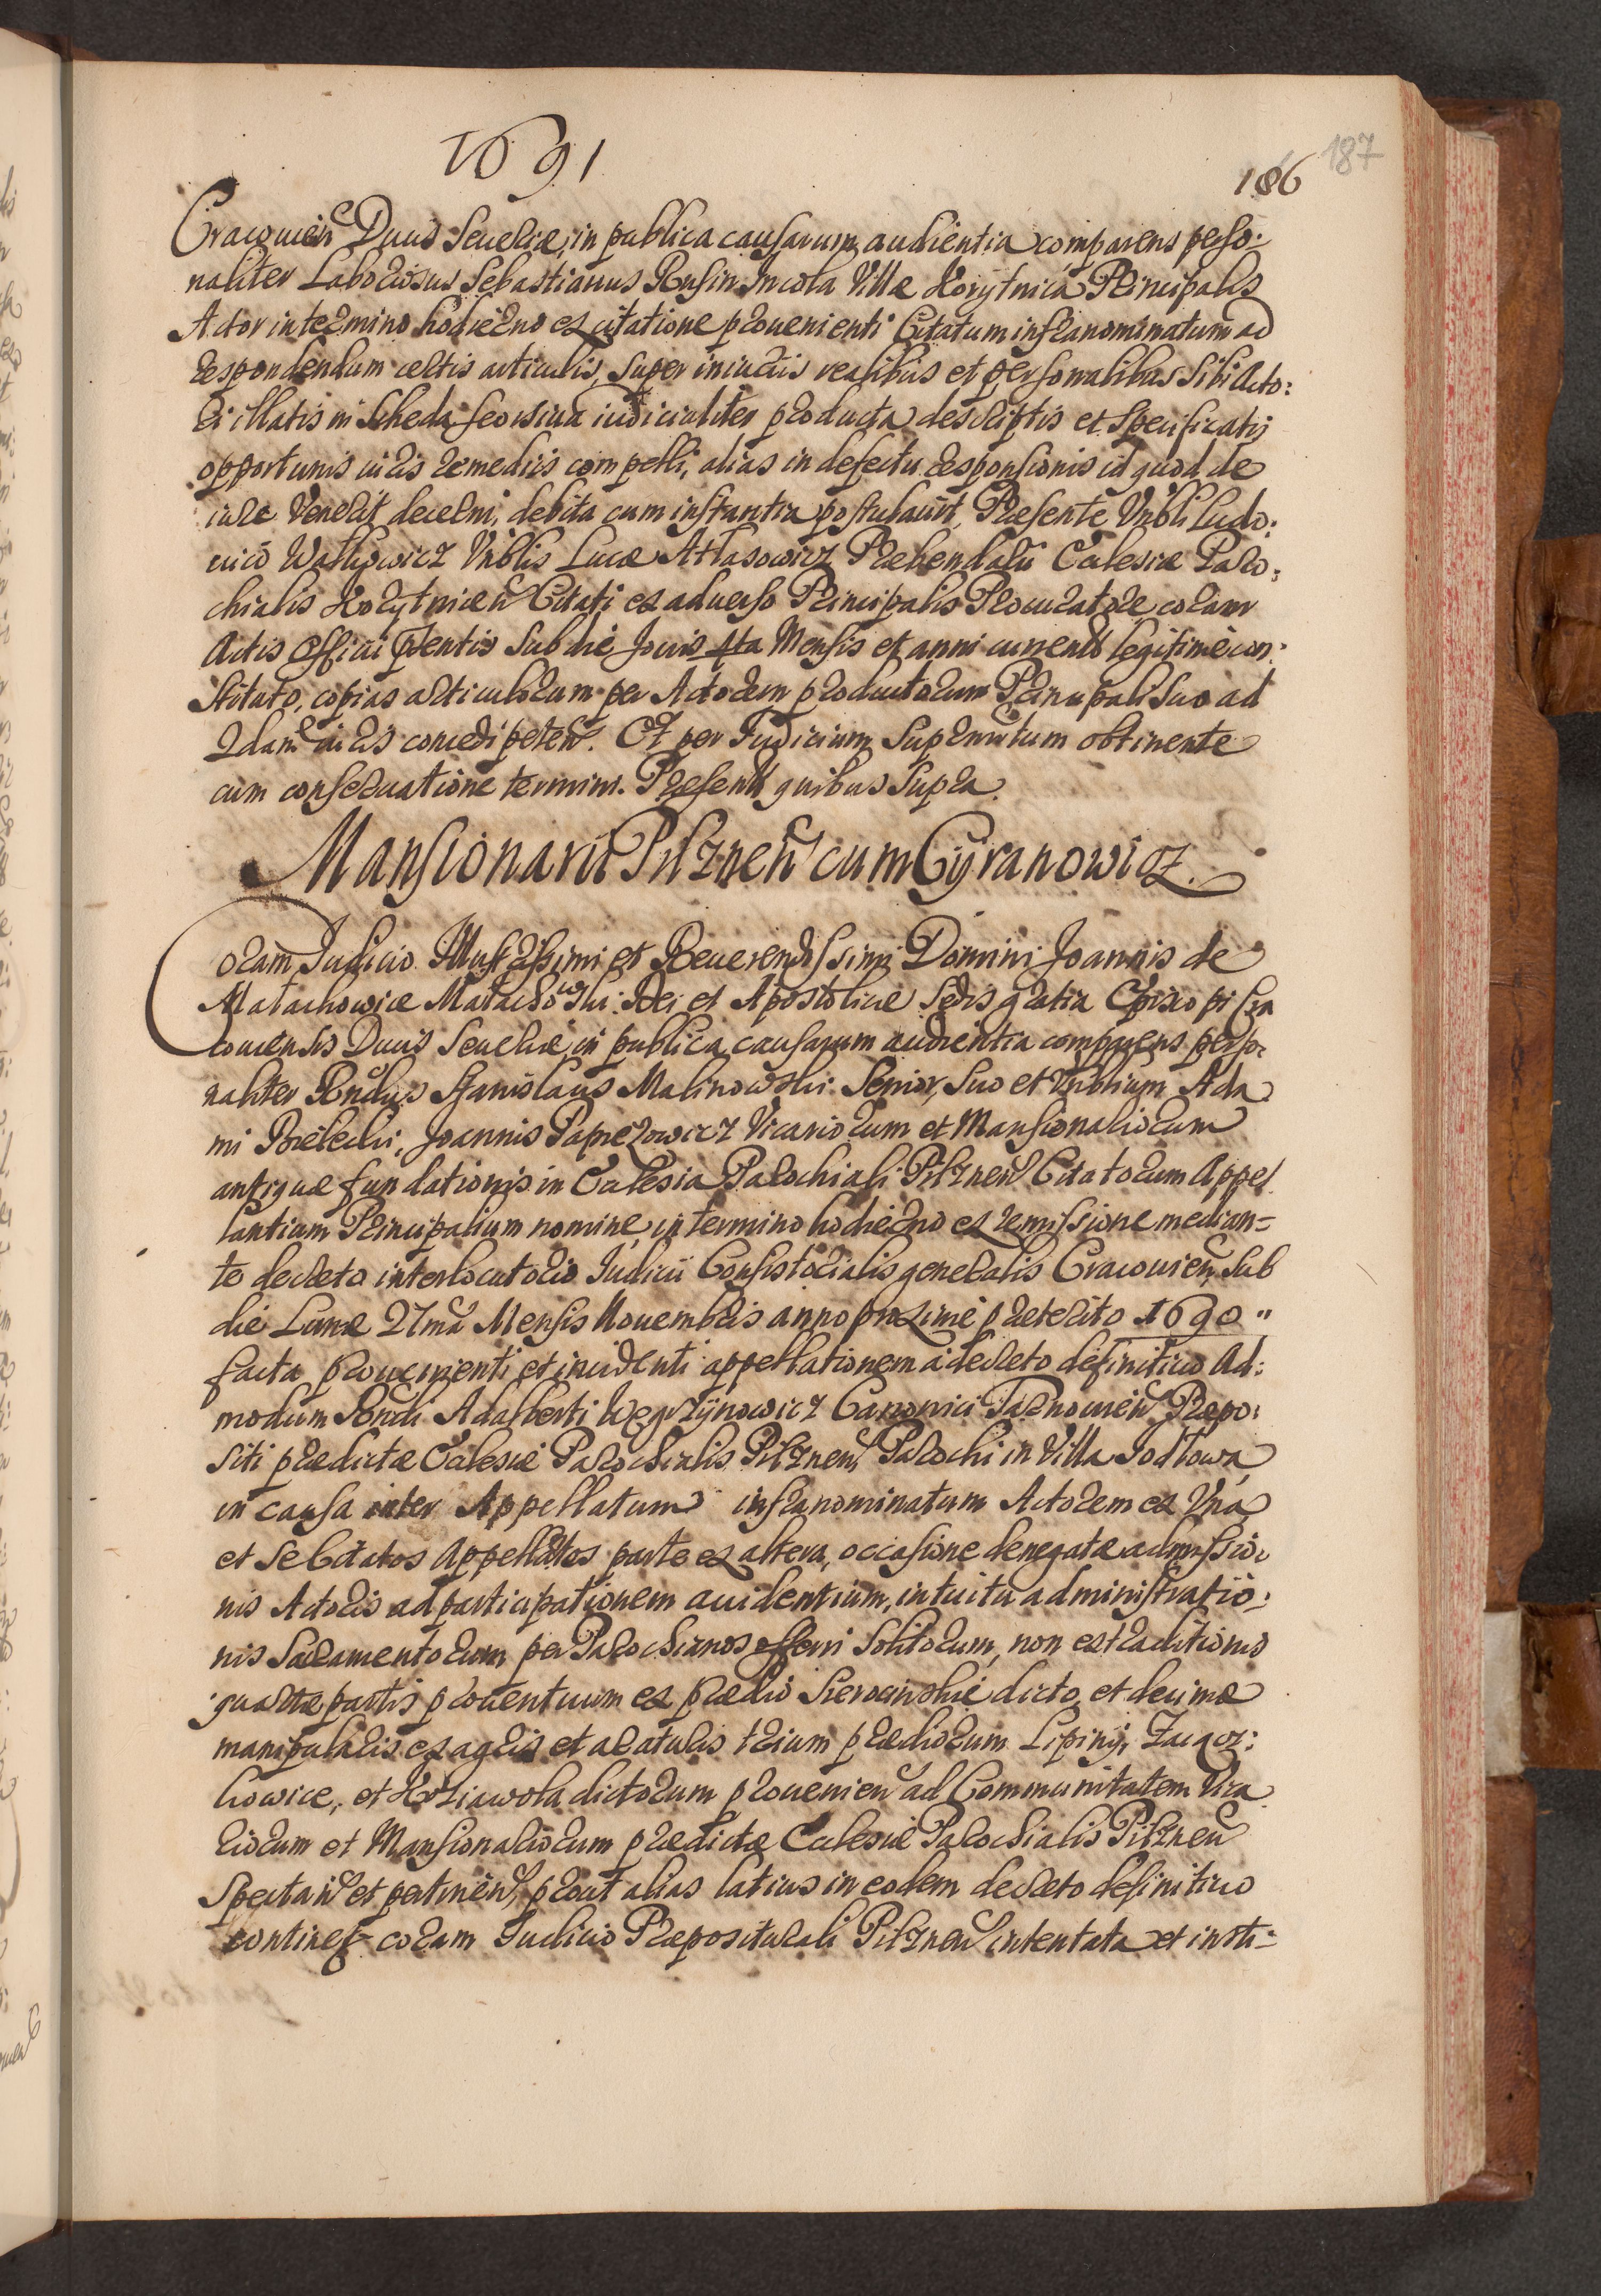 1691
186 187
Cracovien Ducis Severiæ, in publica causarum audientia comparens perso:
naliter Laboriosus Sebastianus Rusin Incola Villæ Korytnica Principalis
Actor in termino hodierno ex citatione provenienti Citatum infranominatum ad
respondendum certis articulis, super iniuriis realibus et personalibus sibi Acto:
ri illatis in scheda seorsiva iudicialiter producta descriptis et specificatis
opportunis iuris remediis compelli, alias in defectu responsionis id quod de
iure Venerit decerni, debita cum instantia postulavit, Præsente Vnbli Ludo:
vico Vnblis Lucæ Atlasowicz Præbendarii Ecclesiæ Paro:
chialis Korytnicen Citati ex adverso Principalis Procuratore coram
Actis Officii præntis sub die Jovis 4ta Mensis et anni currents legitime con:
stituto, copias articulorum per Actorem productorum Principali suo ad
concedi peten. Et per Iudicium obtinente
cum conservatione termini. Præsentt quibus supra.
Mansionarii Pilznen cum Cyranowicz.
Coram Iudicio Illustrissimi et Reverendissimi Domini Joannis de
Małachowice Małachowski Dei et Apostolicæ Sedis gratia Episcopi Cra
coviensis Ducis Severiæ in publica causarum audientia comparens perso:
naliter Rndus Stanislaus Malinowski Senior, suo et Vnblium Ada
mi Bielecki, Joannis Papiezowicz Vicariorum et Mansionariorum
antiquæ fundationis in Ecclesia Parochiali Pilznen Citatorum Appel
lantium Principalium nomine, in termino hodierno ex remissione median=
te decreto interlocutorio Iudicii Consistorialis generalis Cracovien sub
die Lunæ 27ma Mensis Novembris anno proxime præterito 1690
facta provenienti et incidenti appellationem a decreto definitivo Ad:
modum Rndi Adalberti Węgrzynowicz Canonici Tarnovien Præpo:
siti prædictæ Ecclesiæ Parochialis Pilznen, Parochi in Villa Jodłowa
in causa inter Appellatum infranominatum Actorem ex Vna
et se Citatos Appellantes parte ex altera, occasione denegatæ admissio:
nis Actoris ad participationem accidentium, intuitu administratio:
nis Sacramentorum per Parochianos offerri solitorum, non extraditionis
quartæ partis proventuum ex prædio Sieroc dicto, et decimæ
manipularis ex agris et araturis trium prædiorum Lipiny,
et dictorum provenien ad Communitatem Vica
riorum et Mansionariorum prædictæ Ecclesiæ Parochialis Pilznen
spectan et pertinen, prout alias latius in eodem decreto definitivo
continet coram Iudicio Præpositurali Pilznen intentata et insti=